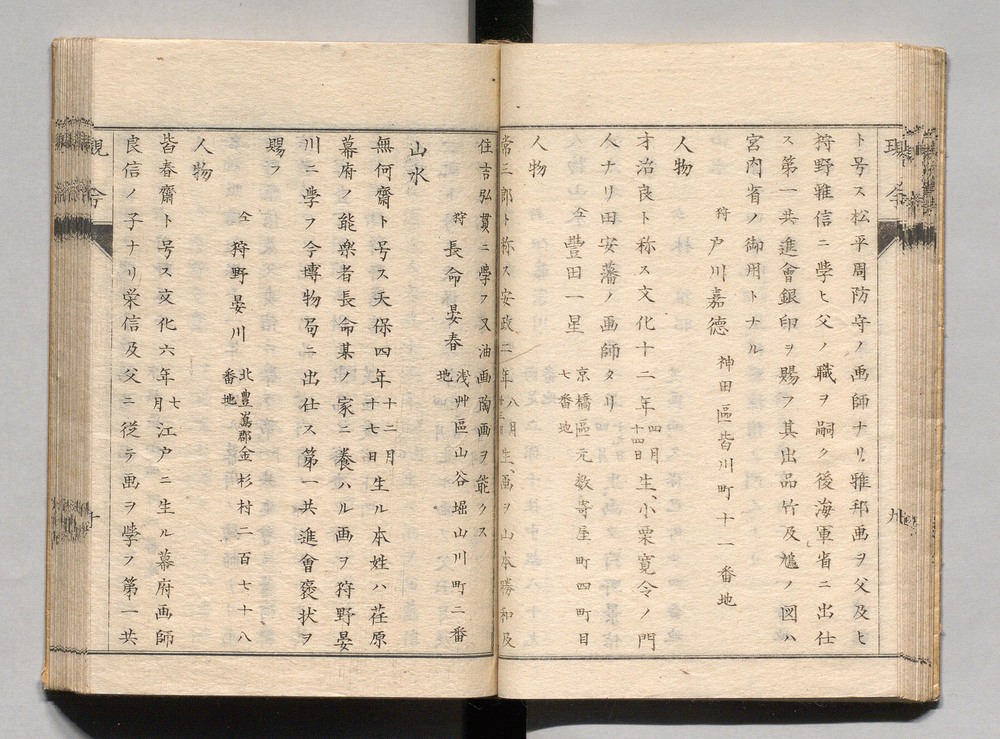 ト号ス松平周防守ノ画師ナリ雅邦画ヲ父及ヒ
狩野雅信ニ学ヒ父ノ職ヲ嗣ク後海軍省ニ出仕
ス第一共進會銀印ヲ賜フ其出品竹及ノ図ハ
宮内省ノ御用トナル
人物
狩 戸川嘉德 神田區皆川町十一番地
才治良ト称ス文化十二年四月十四日生、小栗寛令ノ門
人ナリ田安藩ノ画師タリ
人物
仝 豐田一星 京橋區元数寄屋町四町目七番地
常三郎ト称ス安政二年八月生、画ヲ山本勝和及
住吉弘貫ニ學フ又油画陶画ヲ能クス
狩 長命晏春 浅艸區山谷堀山川町二番地
山水
無何齋ト号ス天保四年十二月十七日生ル本姓ハ荏原
幕府ノ能楽者長命某ノ家ニ養ハル画ヲ狩野晏
川ニ學フ今博物局ニ出仕ス第一共進會褒状ヲ
賜フ
仝 狩野晏川 北豊嶌郡金杉村二百七十八番地
人物
皆春齋ト号ス文化六年七月江戸ニ生ル幕府画師
良信ノ子ナリ栄信及父ニ従テ画ヲ學フ第一共